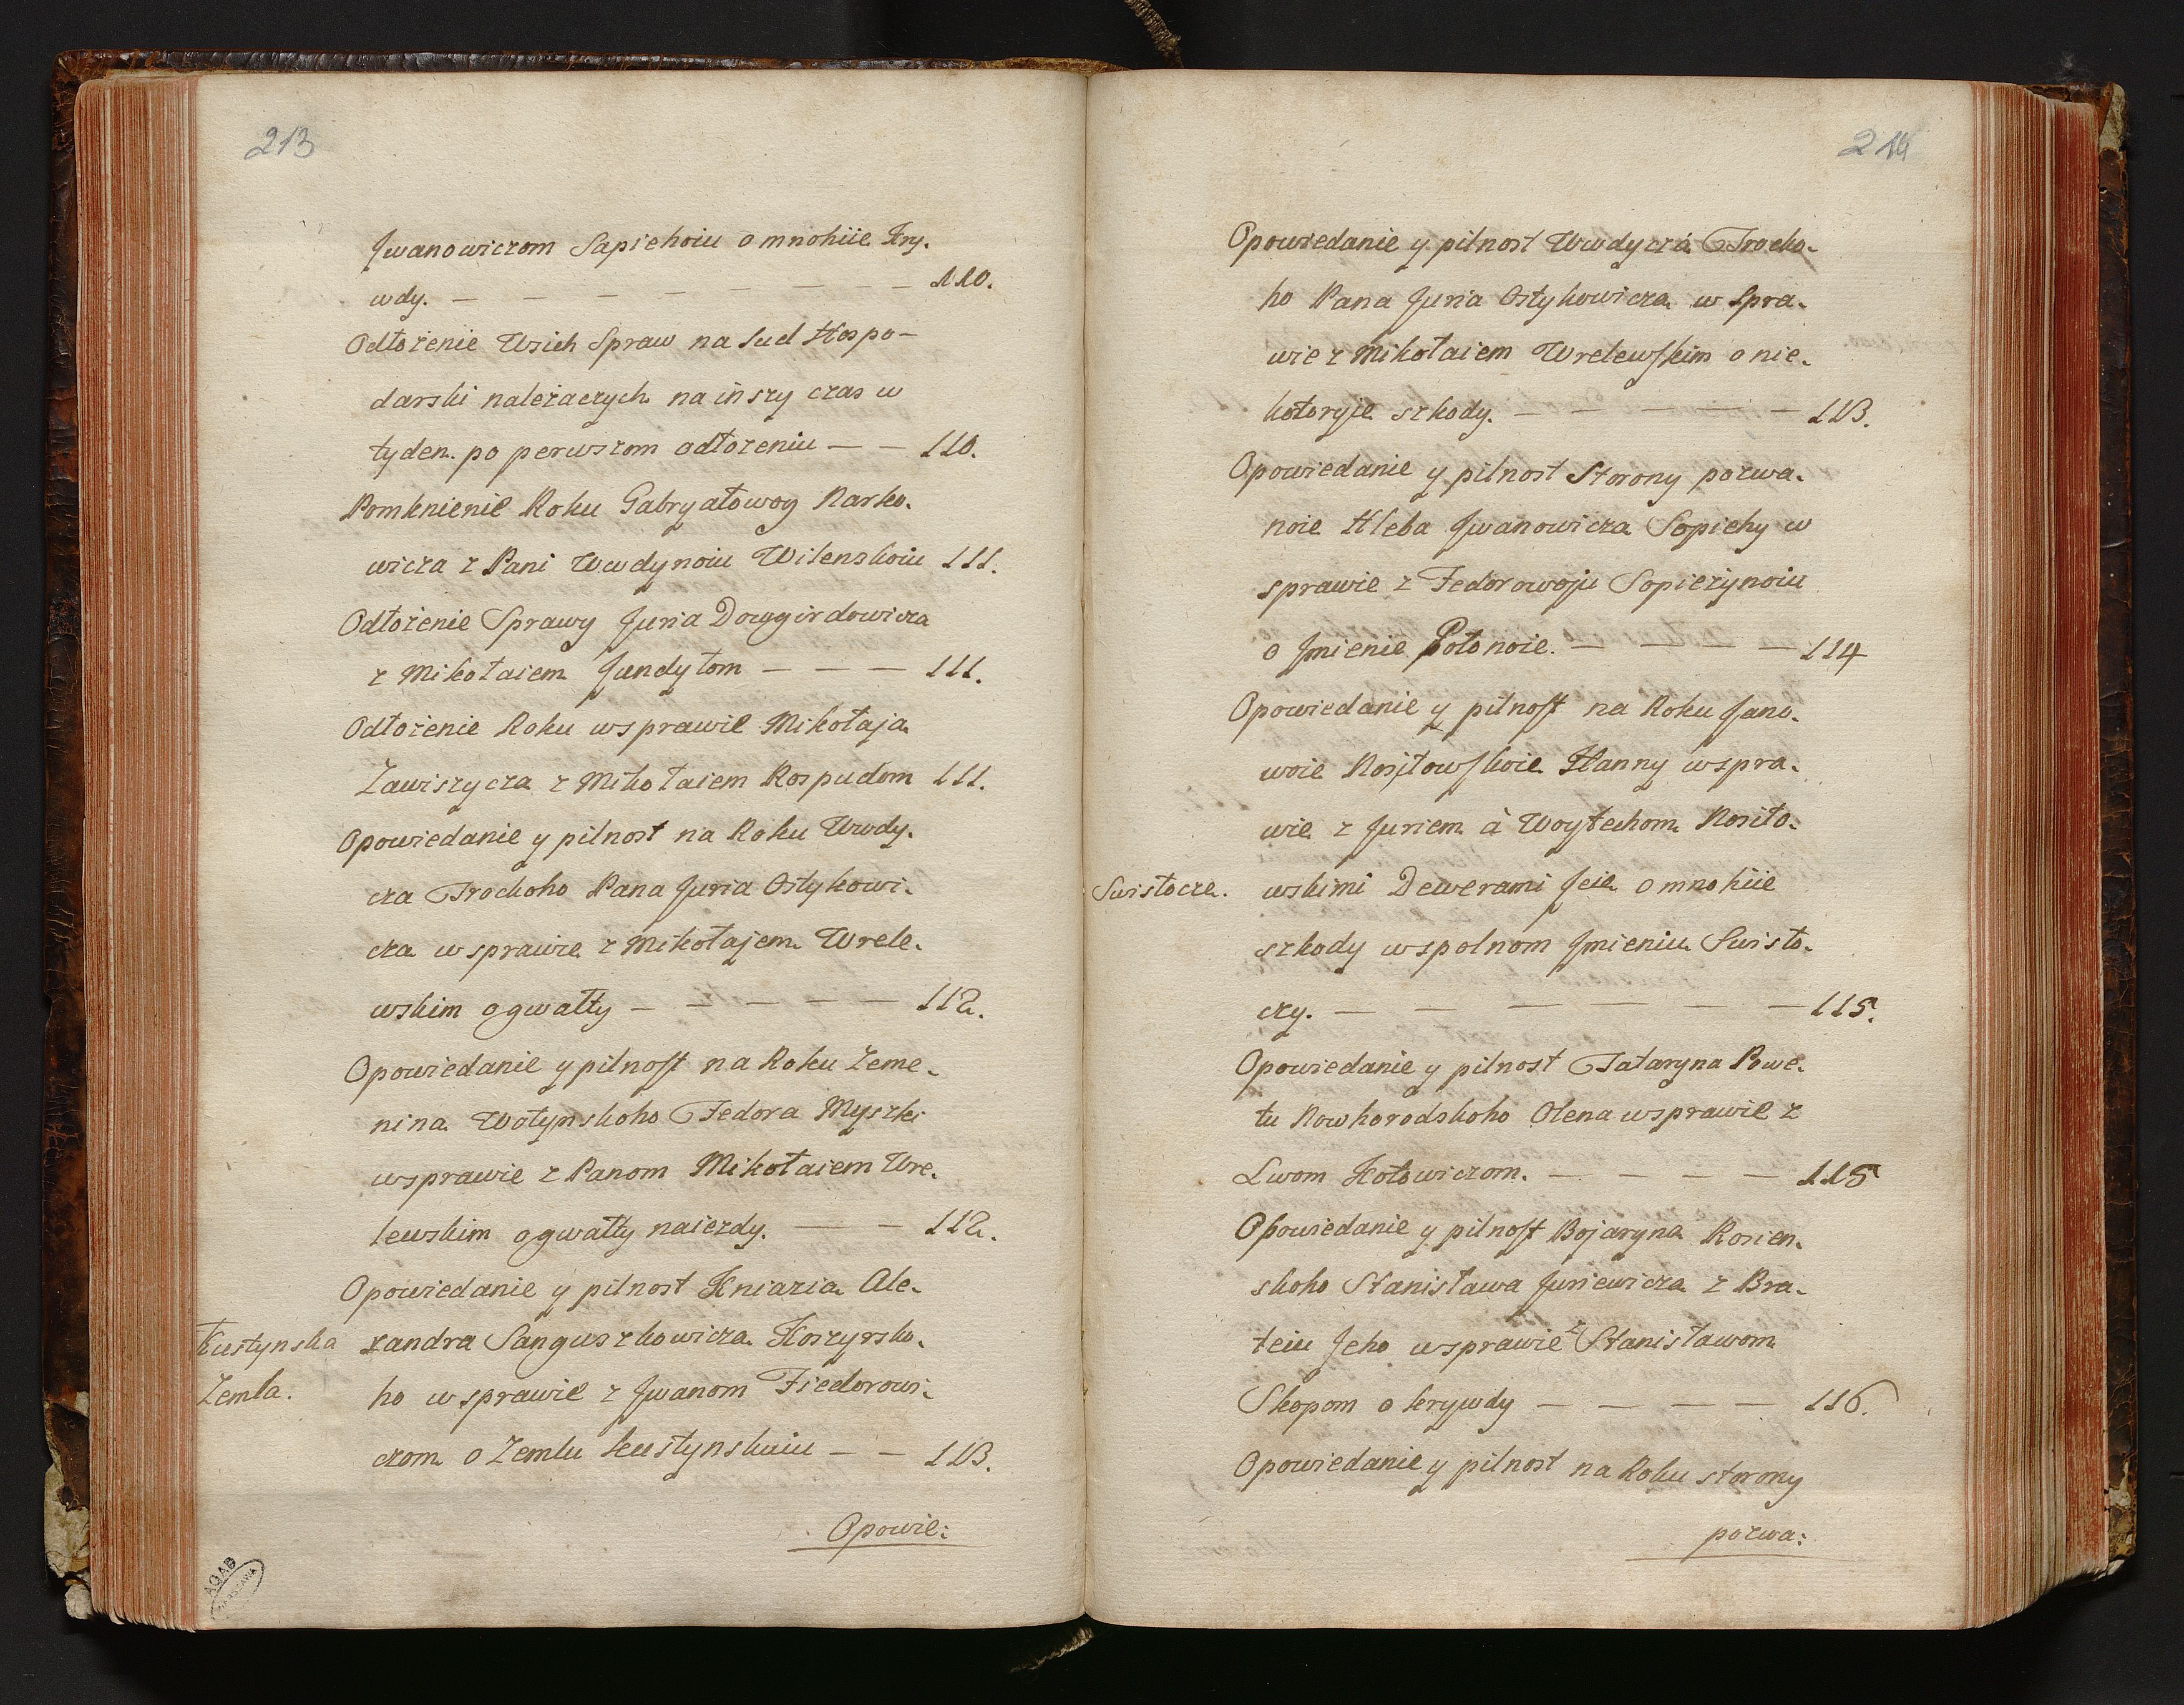 213
Jwanowiczom Sapiehoiu o mnohiie Kry-
wdy. — — — — — — — — 110.
Odłożenie Wsich Spraw na Sud Hospo-
darski należaczych na inszy czas w
tyden. po perwszom odłożeniu — — 110.
Pomknienie Roku Gabryałowog Narko-
wicza z Pani Wwdynoiu Wilenskoiu 111.
Odłożenie Sprawy Juria Dowgirdowicza
z Mikołaiem Jundyłom — — — 111.
Odłożenie Roku w sprawie Mikołaja
Zawiszycza z Mikołaiem Rospudom 111.
Opowiedanie y pilnost na Roku Wwdy-
cza Trockoho Pana Juria Ostykowi-
cza w sprawie z Mikołajem Wrele-
wskim o gwałty — — — — — 112.
Opowiedanie y pilnost na Roku Zeme-
nina Wołynskoho Fedora Myszki
w sprawie z Panom Mikołaiem Wre-
lewskim o gwałty naiezdy. — — 112.
Opowiedanie y pilnost Kniazia Ale-
Kustynska
Zemla.
xandra Sanguszkowicza Koszyrsko-
ho w sprawie z Jwanom Fiedorowi-
czom o Zemlu kustynskuiu — — 113.
Opowie:
AGAD
WARSZAWA
214
Opowiedanie y pilnost Wwdycza Trocko-
ho Pana Juria Ostykowicza w Spra-
wie z Mikołaiem Wrelewskim o nie-
kotoryie szkody. — — — — — 113.
Opowiedanie y pilnost Storony pozwa-
noie Hleba Jwanowicza Sopiehy w
sprawie z Fedorowoju Sopieżynoiu
o Jmienie Połonoie. — — — — 114
Opowiedanie y pilnost na Roku Jano-
woie Nosiłowskoie Hanny w spra-
wie z Juriem à Woytechom Nosiło-
Swisłocza.
wskimi Dewerami Jeie o mnohiie
szkody w spolnom Jmieniu Swisło-
czy. — — — — — — 115.
Opowiedanie y pilnost Tataryna Powe-
tu Nowhorodskoho Olena w sprawie z
Lwom Kołowiczom. — — — — 115
Opowiedanie y pilnost Bojaryna Rosien-
skoho Stanisława Juriewicza z Bra-
teiu Jeho w sprawie z Stanisławom
Skopom o krywdy — — — — 116.
Opowiedanie y pilnost na Roku storony
pozwa: